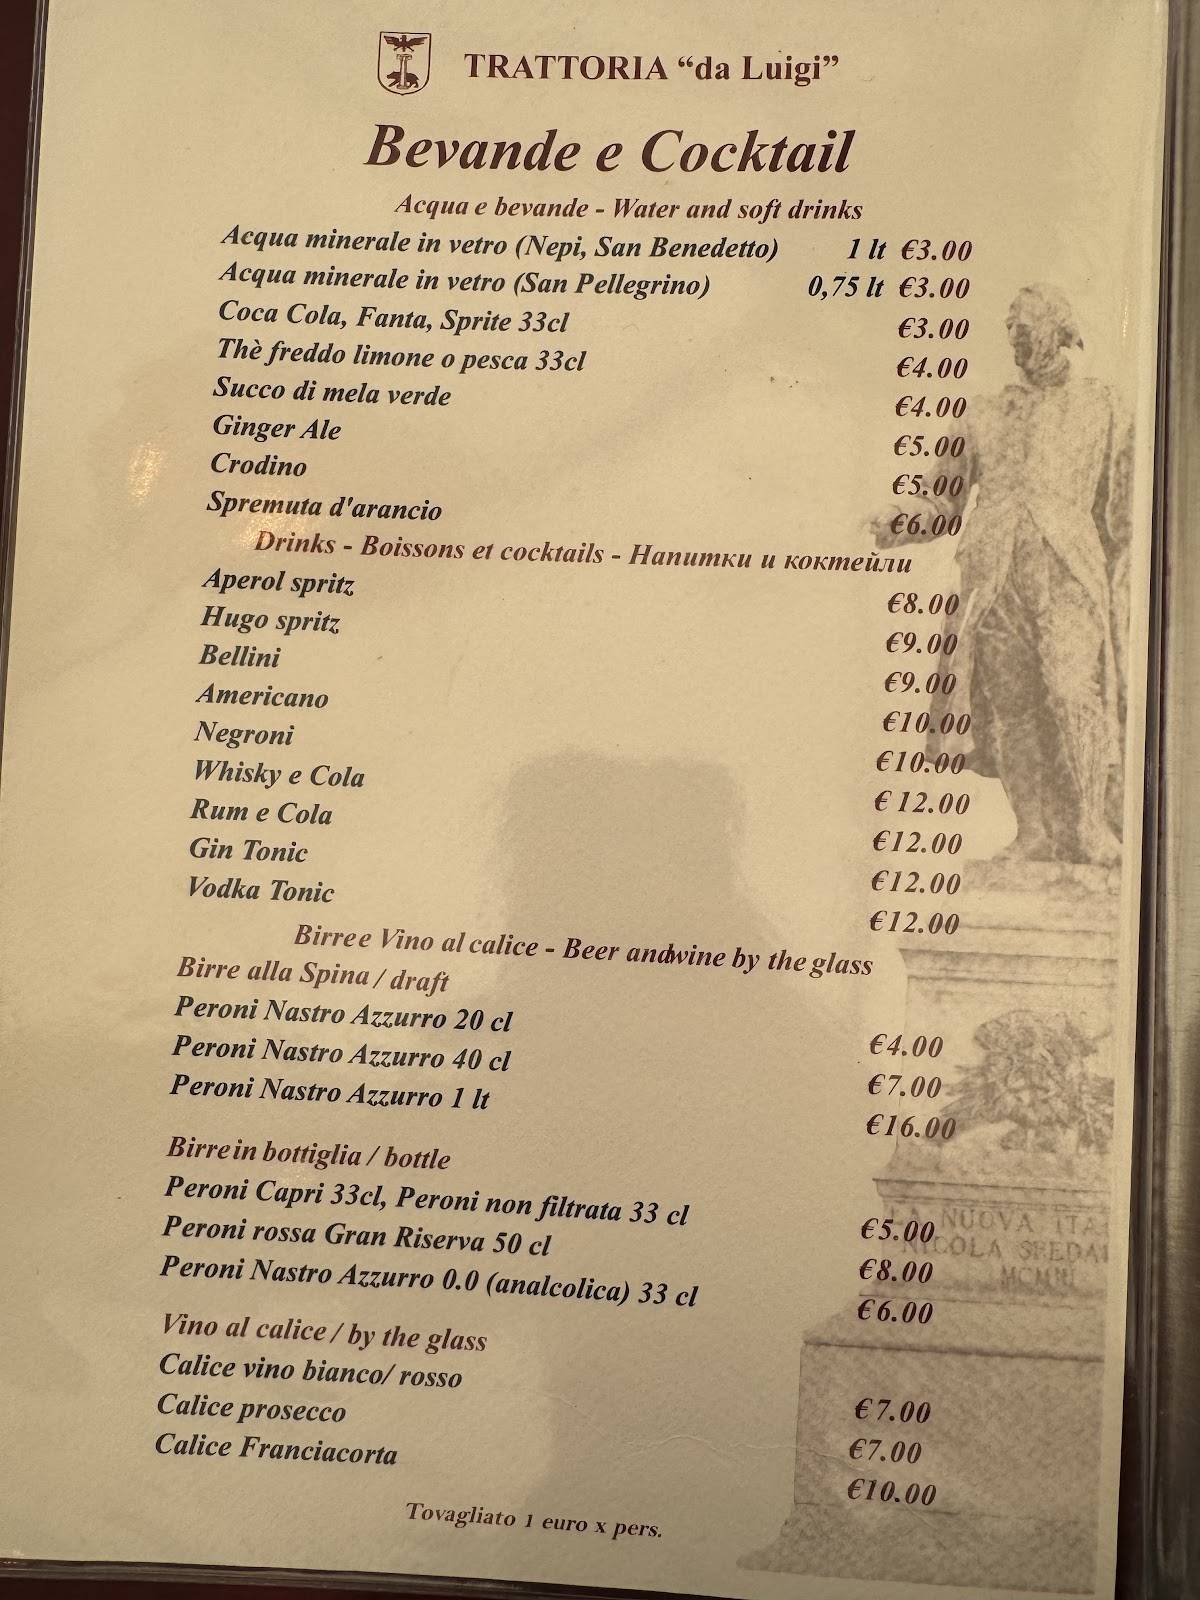 TRATTORIA “da Luigi”
Bevande e Cocktail
Acqua e bevande - Water and soft drinks
Acqua minerale in vetro (Nepi, San Benedetto) 1 lt €3.00
Acqua minerale in vetro (San Pellegrino) 0,75 lt €3.00
Coca Cola, Fanta, Sprite 33cl €3.00
Thè freddo limone o pesca 33cl €4.00
Succo di mela verde €4.00
Ginger Ale €5.00
Crodino €5.00
Spremuta d'arancio €6.00
Drinks - Boissons et cocktails - Напитки и коктейли
Aperol spritz €8.00
Hugo spritz €9.00
Bellini €9.00
Americano €10.00
Negroni €10.00
Whisky e Cola € 12.00
Rum e Cola €12.00
Gin Tonic €12.00
Vodka Tonic €12.00
Birre e Vino al calice - Beer and wine by the glass
Birre alla Spina / draft
Peroni Nastro Azzurro 20 cl €4.00
Peroni Nastro Azzurro 40 cl €7.00
Peroni Nastro Azzurro 1 lt €16.00
Birre in bottiglia / bottle
Peroni Capri 33cl, Peroni non filtrata 33 cl €5.00
Peroni rossa Gran Riserva 50 cl €8.00
Peroni Nastro Azzurro 0.0 (analcolica) 33 cl €6.00
Vino al calice / by the glass
Calice vino bianco/ rosso €7.00
Calice prosecco €7.00
Calice Franciacorta €10.00
Tovagliato 1 euro x pers.
LA NUOVA ITA
NICOLA SPEDA